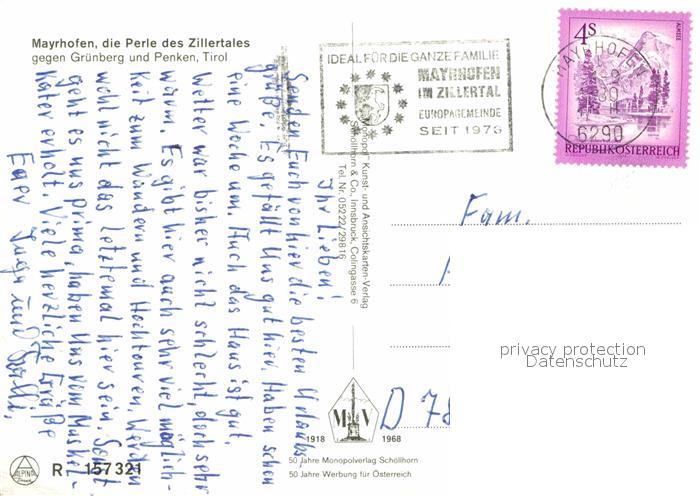 Mayrhofen, die Perle des Zillertales
gegen Grünberg und Penken, Tirol
IDEAL FÜR DIE GANZE FAMILIE
MAYRHOFEN
IM ZILLERTAL
EUROPAGEMEINDE
SEIT 1973
4s
ALMSEE
MAYRHOFEN
6290
REPUBLIK ÖSTERREICH
Ihr Lieben!
Senden Euch von hier die besten Urlaubs-
grüße. Es gefällt uns gut hier. Haben schon
eine Woche um. Auch das Haus ist gut.
Wetter war bisher nicht schlecht, doch sehr
warm. Es gibt hier auch sehr viel Möglich-
keit zum Wandern und Hochtouren. Werden
wohl nicht das letztemal hier sein. Sonst
geht es uns prima, haben uns vom Muskel-
kater erholt. Viele herzliche Grüße
Euer
und
Monopol Kunst- und Ansichtskarten-Verlag
Schöllhorn & Co., Innsbruck, Colingasse 6
Tel. Nr. 05222/29816
Fam.
D 78
privacy protection
Datenschutz
M V
1918 1968
50 Jahre Monopolverlag Schöllhorn
50 Jahre Werbung für Österreich
ALPINA
R 157321